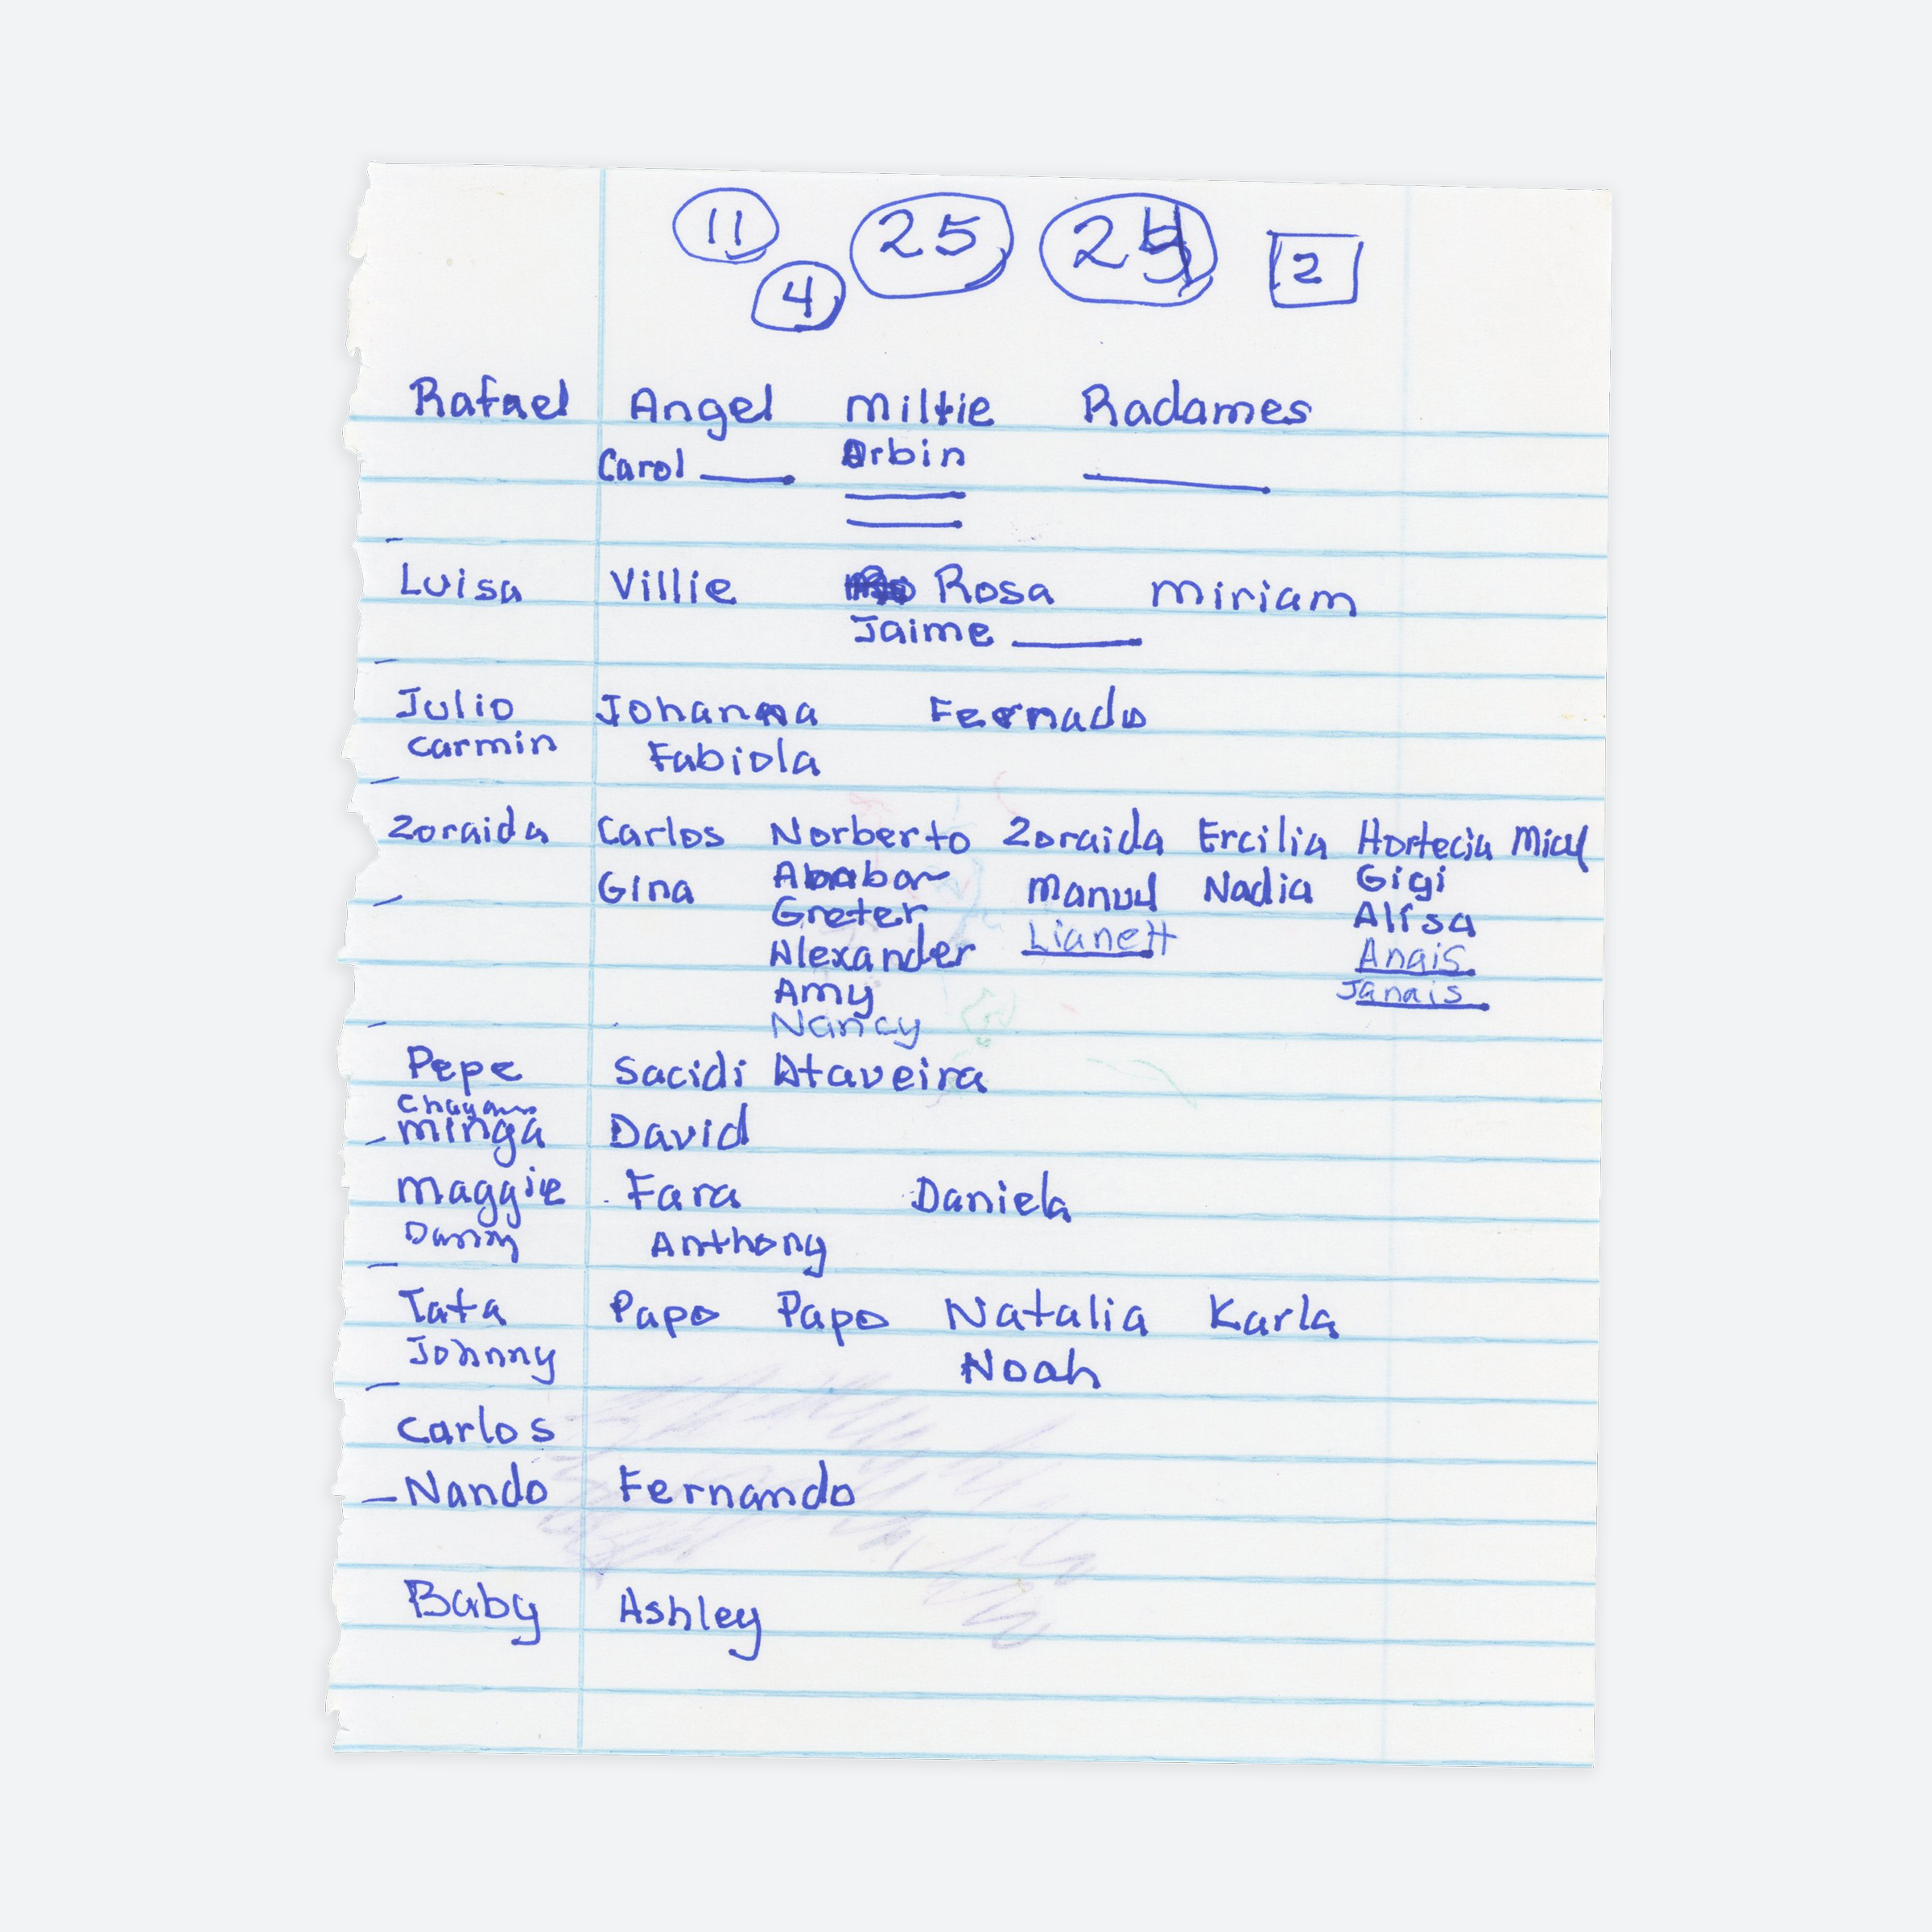 11 25 2
4
Rafael Angel Miltie Radames
Carol Orbin
Luisa Villie Rosa Miriam
Jaime
Julio Johanna Fernado
Carmin Fabiola
Zoraida Carlos Norberto Zoraida Ercilia Hortecia
Gina Manuel Nadia Gigi
Greter Alisa
Lianett
Alexander Anais
Amy Janais
Nancy
Pepe Sacidi Ataveira
Minga David
Maggie Fara Daniela
Danny Anthony
Tata Papo Papo Natalia Karla
Johnny Noah
Carlos
Nando Fernando
Baby Ashley